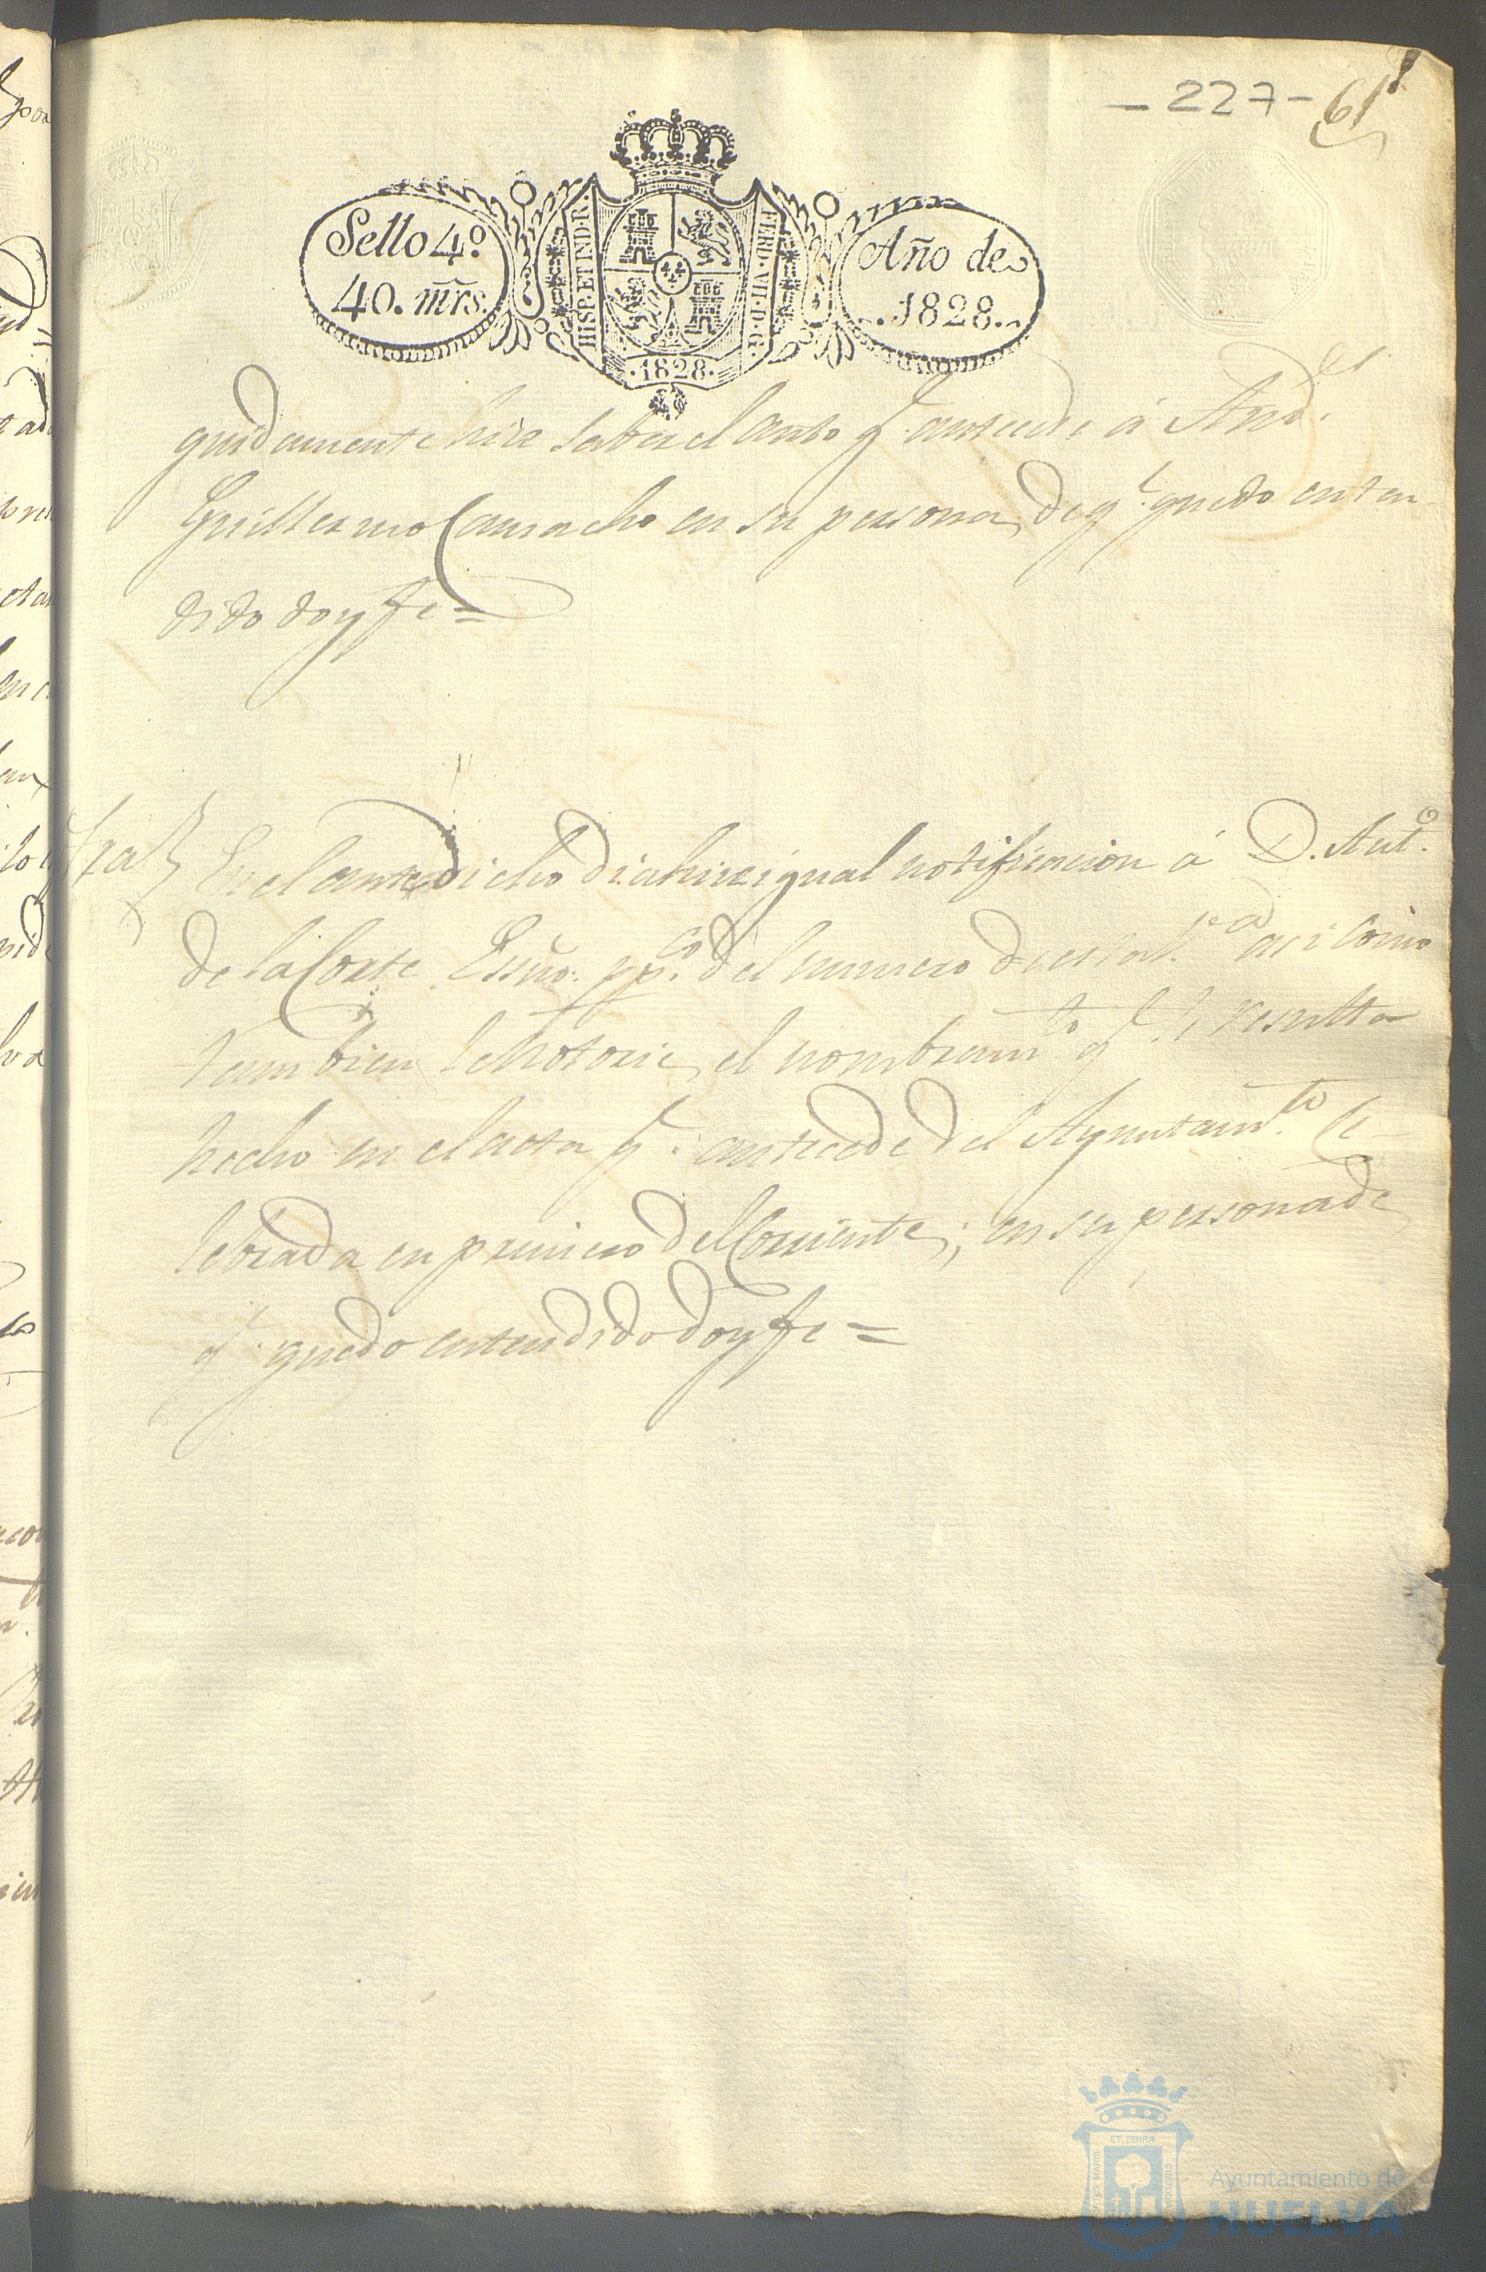 - 227 - 61
Sello 4º
40. mrs.
HISP. ET IND. R.
FERD. VII. D. G.
.1828.
Año de
1828.
guidamente hice saber el auto q.e antecede á And.es
Guillermo Camacho en su persona, de q.e quedo enten
dido doy fe =
Otra
En el antedicho dia hice igual notificacion á D. Ant.o
de la Corte Essno. pp.co del numero de esta asi como
tambien le notorie el nombram.to q.e le resulta
hecho en el acta q.e antecede del Ayuntam.to Ce
lebrada en primero del Corriente; en su persona de
q.e quedo entendido doy fe =
ET TERRA
Ayuntamiento de
HUELVA